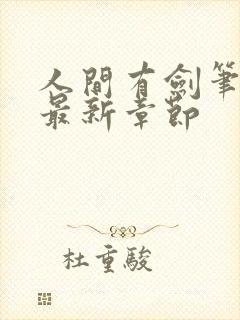 人間有劍筆
最新章節
杜重駿